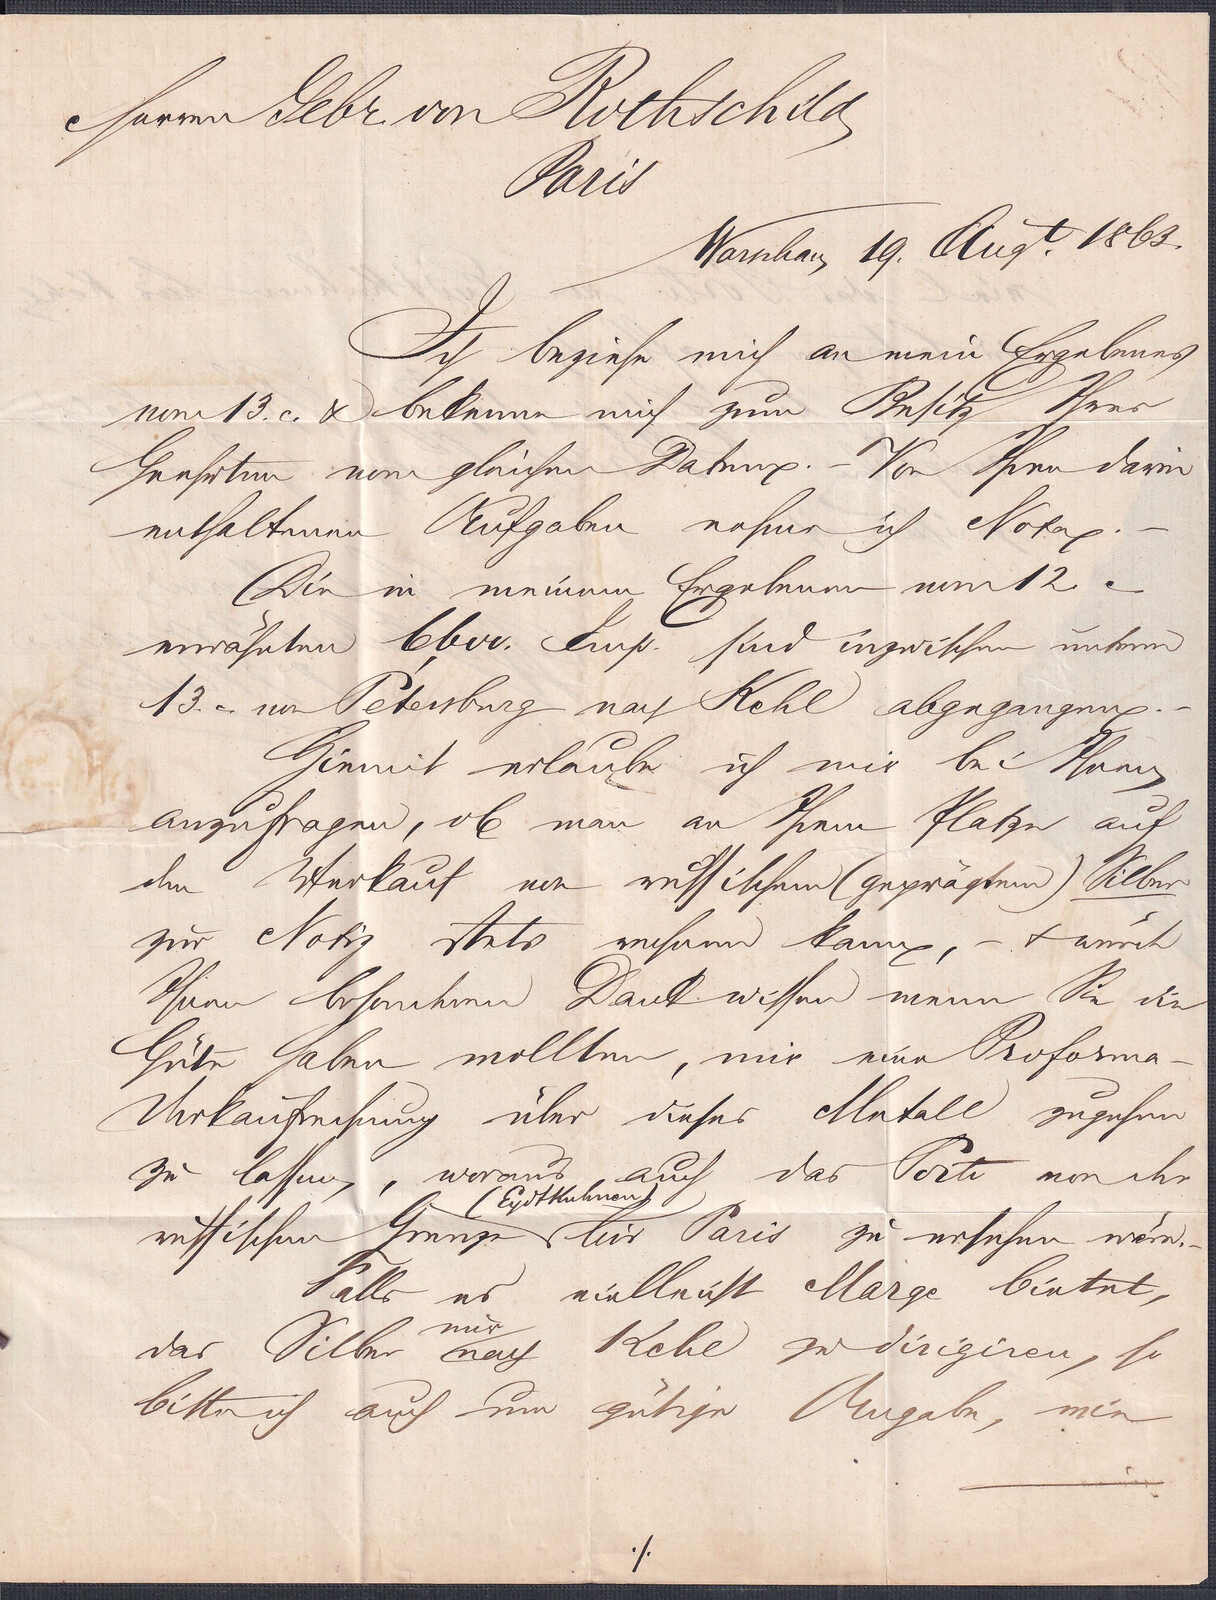 Herren Gebr. von Rothschild
Paris
Warschau, 19. Augt. 1863.
Ich beziehe mich an mein Ergebenes
vom 13. c. & bekenne mich zum Besitz Ihres
Geehrten vom gleichen Datum. – Von Ihren darin
enthaltenen Aufgaben nehme ich Nota. –
Die in meinem Ergebenen vom 12. c.
erwähnten Imp. sind inzwischen unterm
13. c. von Petersburg nach Kehl abgegangen. –
Hiemit erlaube ich mir bei Ihnen
anzufragen, ob man an Ihrem Platze auf
den Verkauf von russischem (geprägtem) Silber
zur Notiz stets rechnen kann, – & würde
Ihnen besonderen Dank wissen wenn Sie die
Güte haben wollten, mir eine Proforma-
Verkaufrechnung über dieses Metall zugehen
zu lassen, woraus auch das Porto von der
(Eydtkuhnen)
russischen Grenze bis Paris zu ersehen wäre. –
Falls es vielleicht Marge bietet,
nur
das Silber nach Kehl zu dirigiren, so
bitte ich auch um gütige Angabe, wie
./.